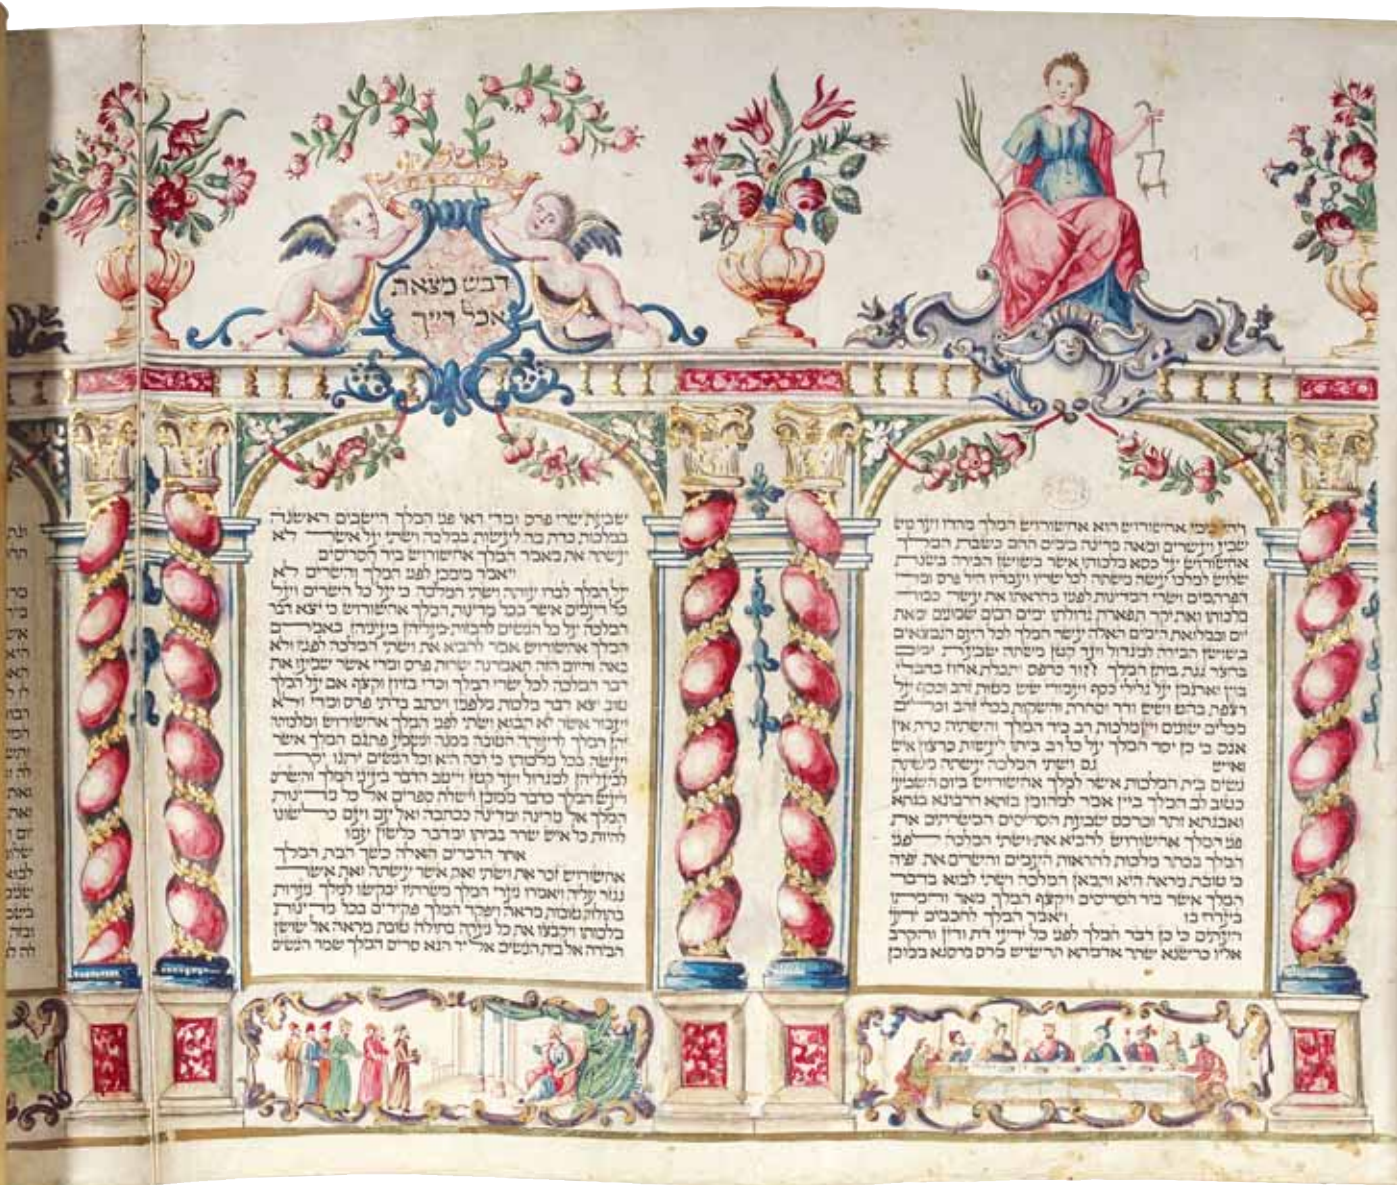 דבש מצאת
אכל דייך
ויהי בימי אחשורוש הוא אחשורוש המלך מהדו ועד כוש
שבע ועשרים ומאה מדינה בימים ההם כשבת המלך
אחשורוש על כסא מלכותו אשר בשושן הבירה בשנת
שלוש למלכו עשה משתה לכל שריו ועבדיו חיל פרס ומדי
הפרתמים ושרי המדינות לפניו בהראתו את עשר כבוד
מלכותו ואת יקר תפארת גדולתו ימים רבים שמונים ומאת
יום ובמלואת הימים האלה עשה המלך לכל העם הנמצאים
בשושן הבירה למגדול ועד קטן משתה שבעת ימים
בחצר גנת ביתן המלך חור כרפס ותכלת אחוז בחבלי
בוץ וארגמן על גלילי כסף ועמודי שש מטות זהב וכסף על
רצפת בהט ושש ודר וסחרת והשקות בכלי זהב וכלים
מכלים שונים ויין מלכות רב כיד המלך והשתיה כדת אין
אנס כי כן יסד המלך על כל רב ביתו לעשות כרצון איש
ואיש גם ושתי המלכה עשתה משתה
נשים בית המלכות אשר למלך אחשורוש ביום השביעי
כטוב לב המלך ביין אמר למהומן בזתא חרבונא בגתא
ואבגתא זתר וכרכס שבעת הסריסים המשרתים את
פני המלך אחשורוש להביא את ושתי המלכה לפני
המלך בכתר מלכות להראות העמים והשרים את יפיה
כי טובת מראה היא ותמאן המלכה ושתי לבוא בדבר
המלך אשר ביד הסריסים ויקצף המלך מאד וחמתו
בערה בו ויאמר המלך לחכמים ידעי
העתים כי כן דבר המלך לפני כל ידעי דת ודין והקרב
אליו כרשנא שתר אדמתא תרשיש מרס מרסנא ממוכן
שבעת שרי פרס ומדי ראי פני המלך הישבים ראשנה
במלכות כדת מה לעשות במלכה ושתי על אשר לא
עשתה את מאמר המלך אחשורוש ביד הסריסים
ויאמר מומכן לפני המלך והשרים לא
על המלך לבדו עותה ושתי המלכה כי על כל השרים ועל
כל העמים אשר בכל מדינות המלך אחשורוש כי יצא דבר
המלכה על כל הנשים להבזות בעליהן בעיניהן באמרם
המלך אחשורוש אמר להביא את ושתי המלכה לפניו ולא
באה והיום הזה תאמרנה שרות פרס ומדי אשר שמעו את
דבר המלכה לכל שרי המלך וכדי בזיון וקצף אם על המלך
טוב יצא דבר מלכות מלפניו ויכתב בדתי פרס ומדי ולא
יעבור אשר לא תבוא ושתי לפני המלך אחשורוש ומלכותה
יתן המלך לרעותה הטובה ממנה ונשמע פתגם המלך אשר
יעשה בכל מלכותו כי רבה היא וכל הנשים יתנו יקר
לבעליהן למגדול ועד קטן וייטב הדבר בעיני המלך והשרים
ויעש המלך כדבר ממוכן וישלח ספרים אל כל מדינות
המלך אל מדינה ומדינה ככתבה ואל עם ועם כלשונו
להיות כל איש שרר בביתו ומדבר כלשון עמו
אחר הדברים האלה כשך חמת המלך
אחשורוש זכר את ושתי ואת אשר עשתה ואת אשר
נגזר עליה ויאמרו נערי המלך משרתיו יבקשו למלך נערות
בתולות טובות מראה ויפקד המלך פקידים בכל מדינות
מלכותו ויקבצו את כל נערה בתולה טובת מראה אל שושן
הבירה אל בית הנשים אל יד הגא סריס המלך שמר הנשים